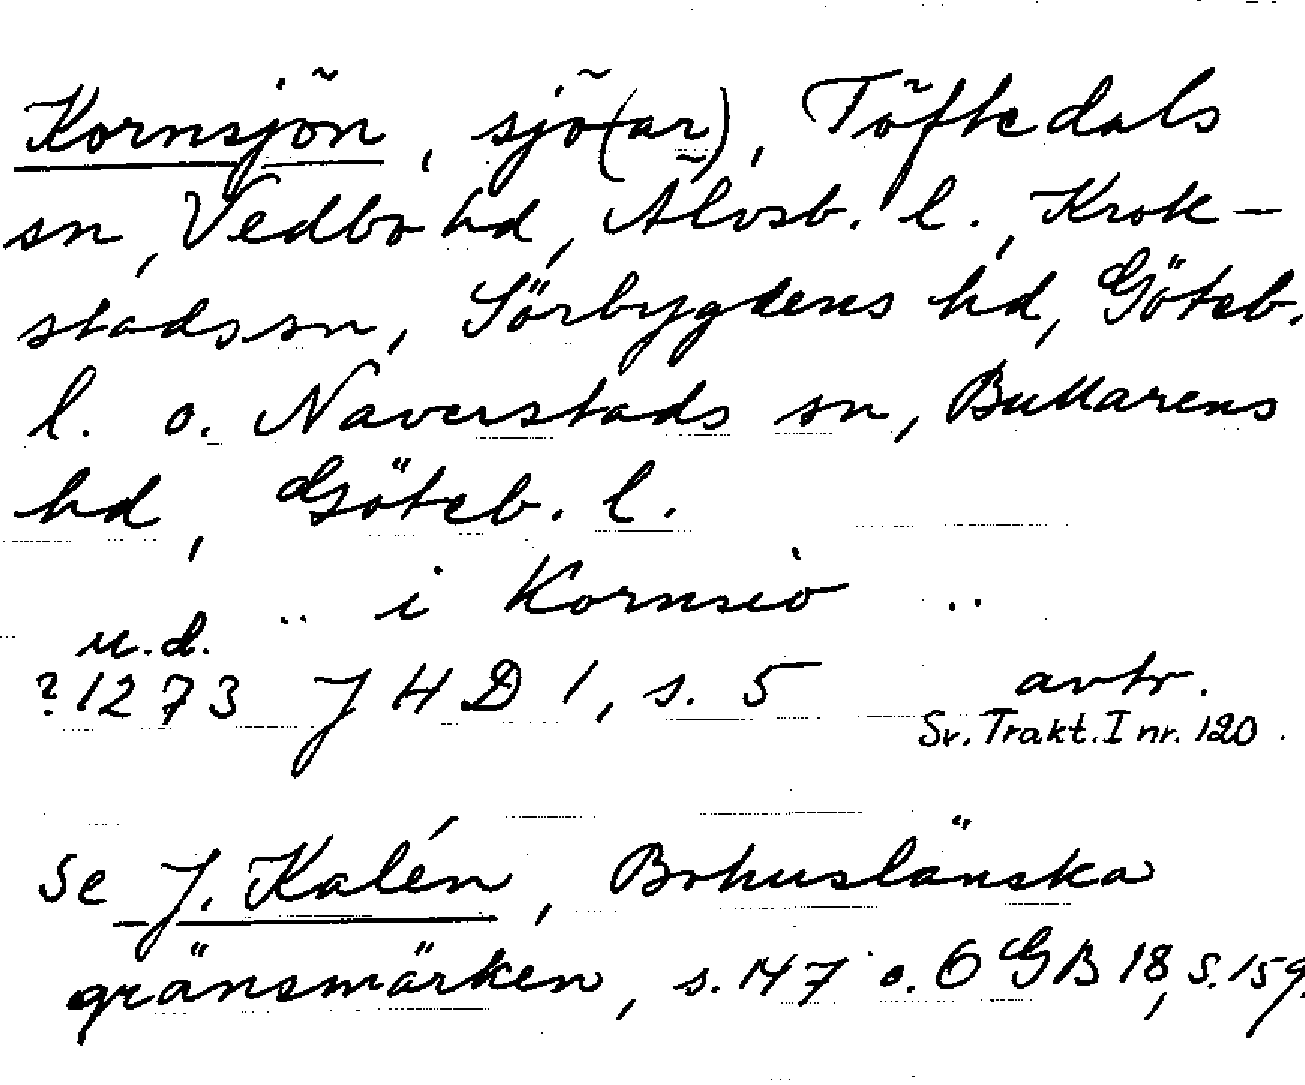 Kornsjön, sjö(ar), Töftedals
sn, Vedbo hd, Älvsb. l., Krok-
stads sn, Sörbygdens hd, Göteb.
l. o. Naverstads sn, Bullarens
hd, Göteb. l.
.. i Kornsio ..
u.d.
?1273 JHD 1, s. 5 avtr.
Sv. Trakt. I nr. 120.
Se J. Kalén, Bohuslänska
gränsmärken, s. 147 o. OGB 18, s. 159.